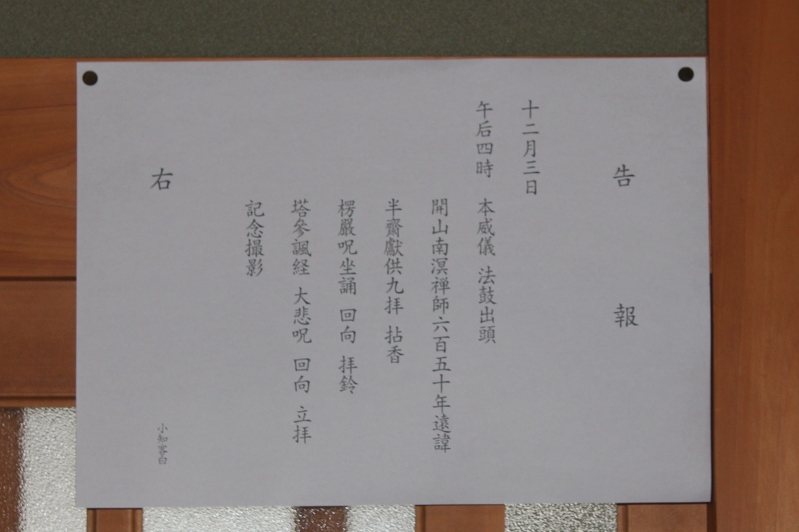 告報
十二月三日
午后四時 本威儀 法鼓出頭
開山南溟禅師六百五十年遠諱
半齋獻供九拝 拈香
楞嚴呪坐誦 回向 拝鈴
塔參諷経 大悲呪 回向 立拝
記念撮影
右
小知客白